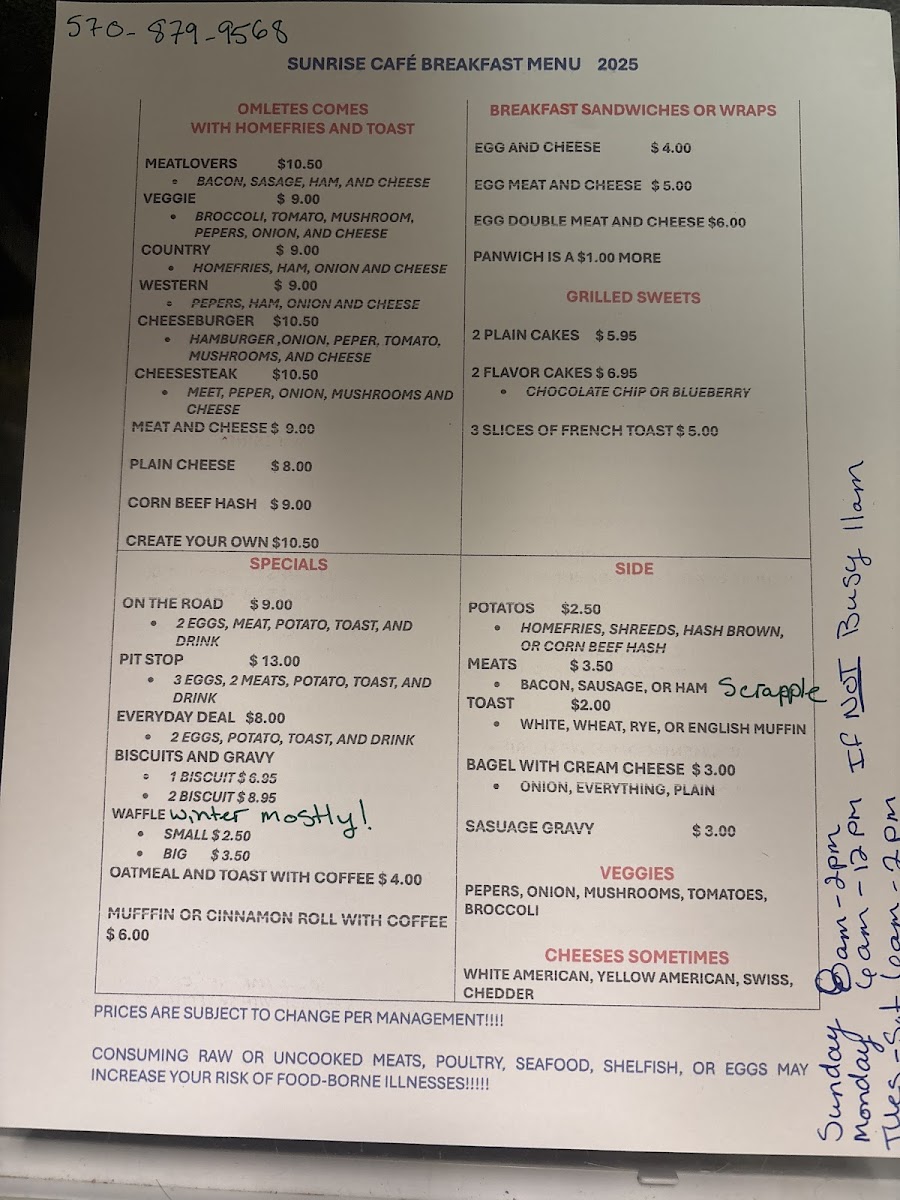 570-879-9568
SUNRISE CAFÉ BREAKFAST MENU 2025
OMLETES COMES
WITH HOMEFRIES AND TOAST
MEATLOVERS $10.50
• BACON, SASAGE, HAM, AND CHEESE
VEGGIE $ 9.00
• BROCCOLI, TOMATO, MUSHROOM,
PEPERS, ONION, AND CHEESE
COUNTRY $ 9.00
• HOMEFRIES, HAM, ONION AND CHEESE
WESTERN $ 9.00
• PEPERS, HAM, ONION AND CHEESE
CHEESEBURGER $10.50
• HAMBURGER ,ONION, PEPER, TOMATO,
MUSHROOMS, AND CHEESE
CHEESESTEAK $10.50
• MEET, PEPER, ONION, MUSHROOMS AND
CHEESE
MEAT AND CHEESE $ 9.00
PLAIN CHEESE $ 8.00
CORN BEEF HASH $ 9.00
CREATE YOUR OWN $10.50
BREAKFAST SANDWICHES OR WRAPS
EGG AND CHEESE $ 4.00
EGG MEAT AND CHEESE $ 5.00
EGG DOUBLE MEAT AND CHEESE $6.00
PANWICH IS A $1.00 MORE
GRILLED SWEETS
2 PLAIN CAKES $ 5.95
2 FLAVOR CAKES $ 6.95
• CHOCOLATE CHIP OR BLUEBERRY
3 SLICES OF FRENCH TOAST $ 5.00
SPECIALS
ON THE ROAD $ 9.00
• 2 EGGS, MEAT, POTATO, TOAST, AND
DRINK
PIT STOP $ 13.00
• 3 EGGS, 2 MEATS, POTATO, TOAST, AND
DRINK
EVERYDAY DEAL $8.00
• 2 EGGS, POTATO, TOAST, AND DRINK
BISCUITS AND GRAVY
• 1 BISCUIT $ 6.95
• 2 BISCUIT $ 8.95
WAFFLE winter mostly!
• SMALL $ 2.50
• BIG $ 3.50
OATMEAL AND TOAST WITH COFFEE $ 4.00
MUFFFIN OR CINNAMON ROLL WITH COFFEE
$ 6.00
SIDE
POTATOS $2.50
• HOMEFRIES, SHREEDS, HASH BROWN,
OR CORN BEEF HASH
MEATS $ 3.50
• BACON, SAUSAGE, OR HAM Scrapple
TOAST $2.00
• WHITE, WHEAT, RYE, OR ENGLISH MUFFIN
BAGEL WITH CREAM CHEESE $ 3.00
• ONION, EVERYTHING, PLAIN
SASUAGE GRAVY $ 3.00
VEGGIES
PEPERS, ONION, MUSHROOMS, TOMATOES,
BROCCOLI
CHEESES SOMETIMES
WHITE AMERICAN, YELLOW AMERICAN, SWISS,
CHEDDER
PRICES ARE SUBJECT TO CHANGE PER MANAGEMENT!!!!
CONSUMING RAW OR UNCOOKED MEATS, POULTRY, SEAFOOD, SHELFISH, OR EGGS MAY
INCREASE YOUR RISK OF FOOD-BORNE ILLNESSES!!!!!
Sunday 8am-2pm
Monday 6am-12pm If NOT Busy 11am
Tues-Sat 6am-2pm